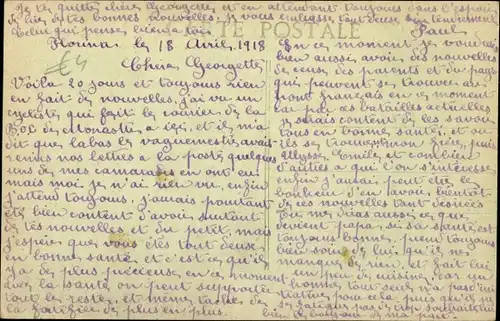 Je te quitte chère Georgette et en attendant toujours dans l'espoir
de tes bonnes nouvelles, je vous embrasse tout deux bien tendrement
Celui qui pense bien à toi
Paul
TE POSTALE
le 18 Avril 1918
€4
Chère Georgette
Voilà 20 jours et toujours rien
en fait de nouvelles, j'ai vu un
cycliste qui fait le courrier de la
de Monastir à ici, et il m'a
dit que labas le vaguemestre avait
remis nos lettres à la poste quelques
uns de mes camarades en ont eu
mais moi je n'ai rien vu, enfin
j'attend toujours, j'aurais pourtant
été bien content d'avoir surtout
de tes nouvelles et du petit, mais
j'espère que vous êtes tout deux
en bonne santé et c'est ce qu'il
y a de plus précieux en ce moment
avec la santé on peut supporter
tout le reste, et même
de plus en plus.
En ce moment je voudrais
bien aussi avoir des nouvelles
de ceux des parents et du pays
qui peuvent se trouver au
front français en ce moment
par ces batailles actuelles
je serais content de les savoir
tous en bonne santé, et où
ils se trouvent mon frère, puis
Ulysse, Emile, et combien
d'autres à qui l'on s'intéresse
enfin j'aurai peut être
bonheur d'en avoir bientôt
de ces nouvelles tant désirées
Tu me diras aussi ce que
devient papa, si sa santé est
toujours bonne, prend toujours
bien soin de lui, qu'il ne
manque de rien, et fait lui
un peu de cuisine, car lui
bien souvent tout seul n'a pas
pour cela puis qu'il ne
se fatigue pas trop
bien le bonjour de ma part